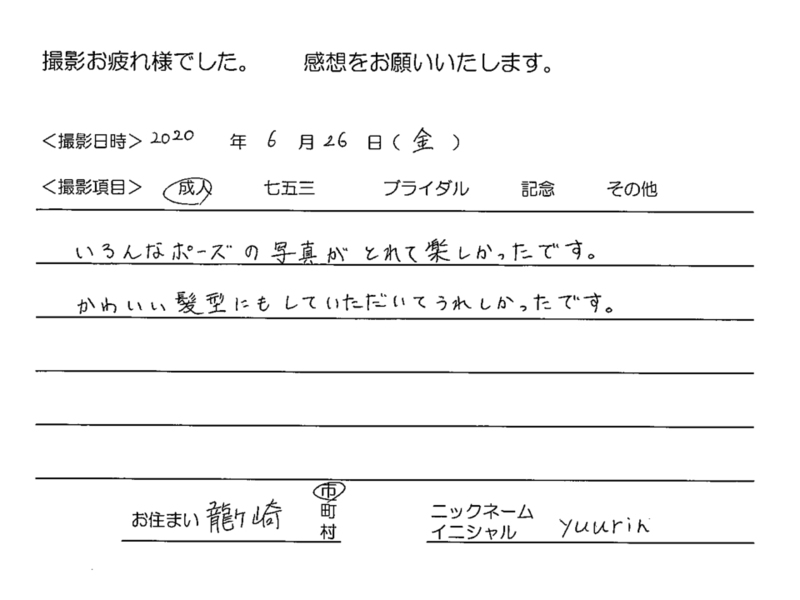 撮影お疲れ様でした。 感想をお願いいたします。
＜撮影日時＞ 2020 年 6 月 26 日（ 金 ）
＜撮影項目＞ 成人 七五三 ブライダル 記念 その他
いろんなポーズの写真がとれて楽しかったです。
かわいい髪型にもしていただいてうれしかったです。
お住まい 龍ヶ崎 市 町 村
ニックネーム イニシャル yuurin